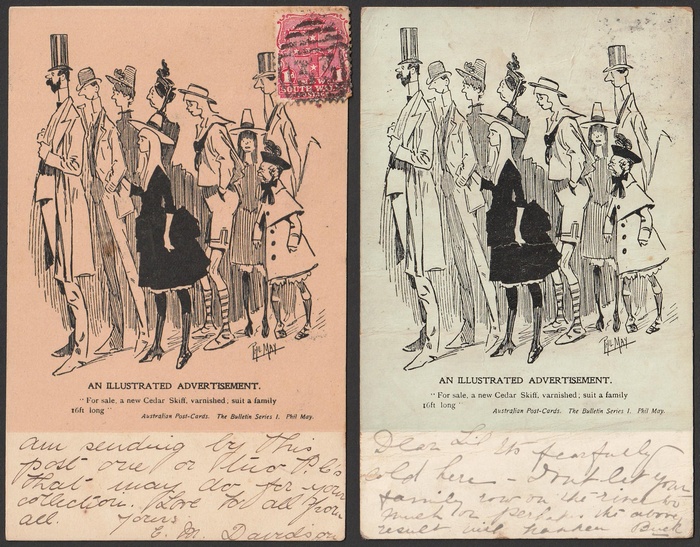 1D 1D
SOUTH WALES
PHIL MAY
AN ILLUSTRATED ADVERTISEMENT.
"For sale, a new Cedar Skiff, varnished; suit a family
16ft long"
Australian Post-Cards. The Bulletin Series I. Phil May.
am sending by this
post one or two P.C's
that may do for your
collection. Love to all from
all. Yours
E. M. Davidson
PHIL MAY
AN ILLUSTRATED ADVERTISEMENT.
"For sale, a new Cedar Skiff, varnished; suit a family
16ft long"
Australian Post-Cards. The Bulletin Series I. Phil May.
Dear Lil its fearfully
cold here – Dont let your
family row on the river too
much or perhaps the above
result will happen Buck